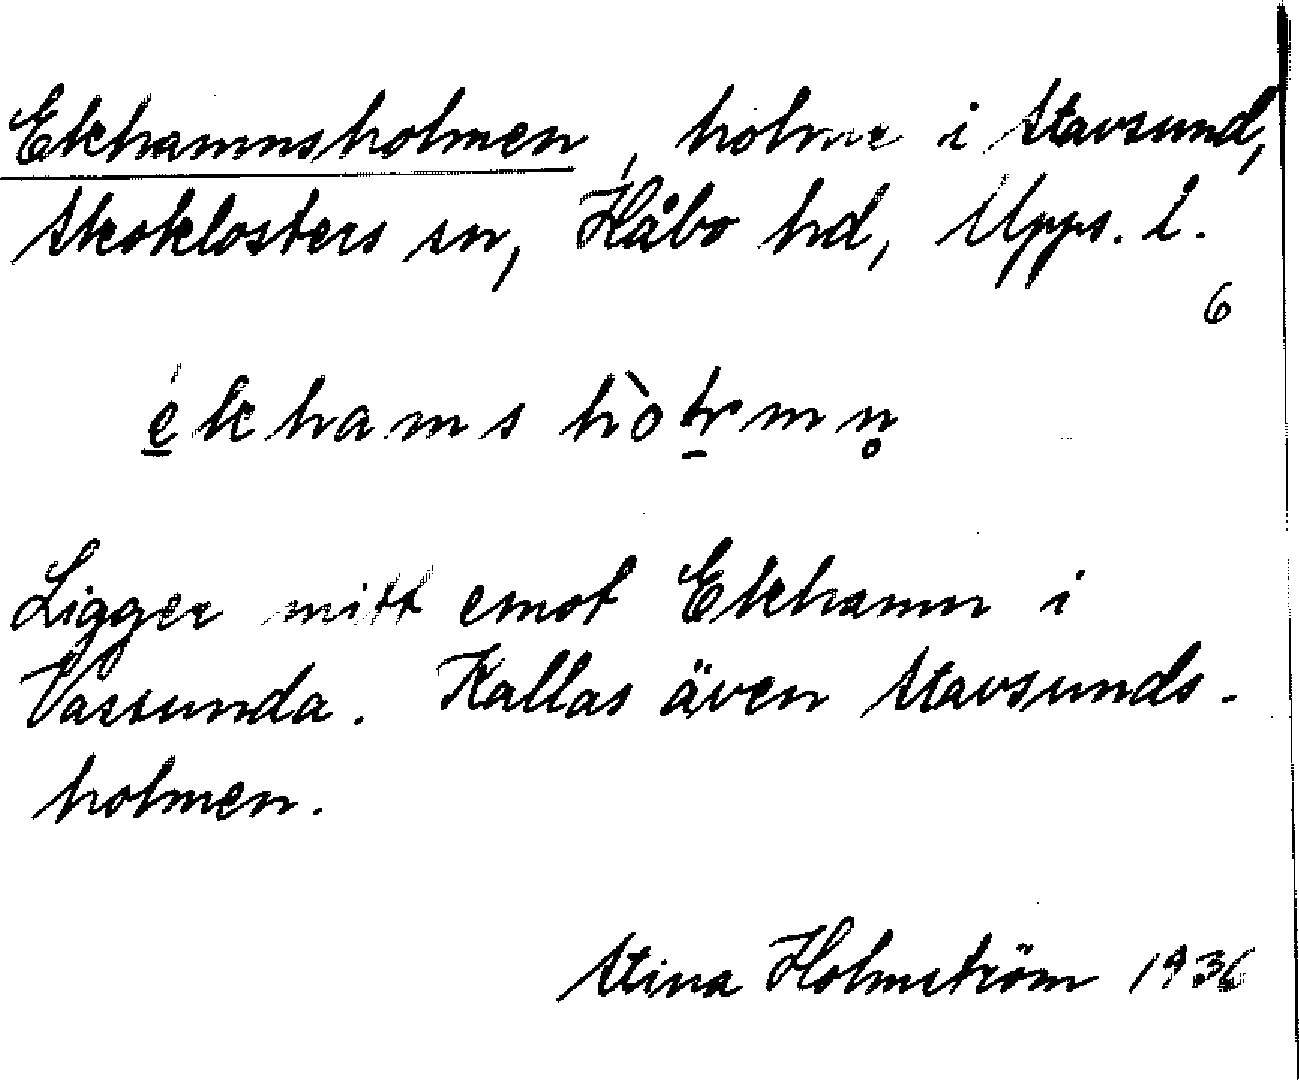 Ekhamnsholmen, holme i Stavsund,
Skoklosters sn, Håbo hd, Upps. l.
6
Ligger mitt emot Ekhamn i
Vassunda. Kallas även Stavsunds-
holmen.
Stina Holmström 1936